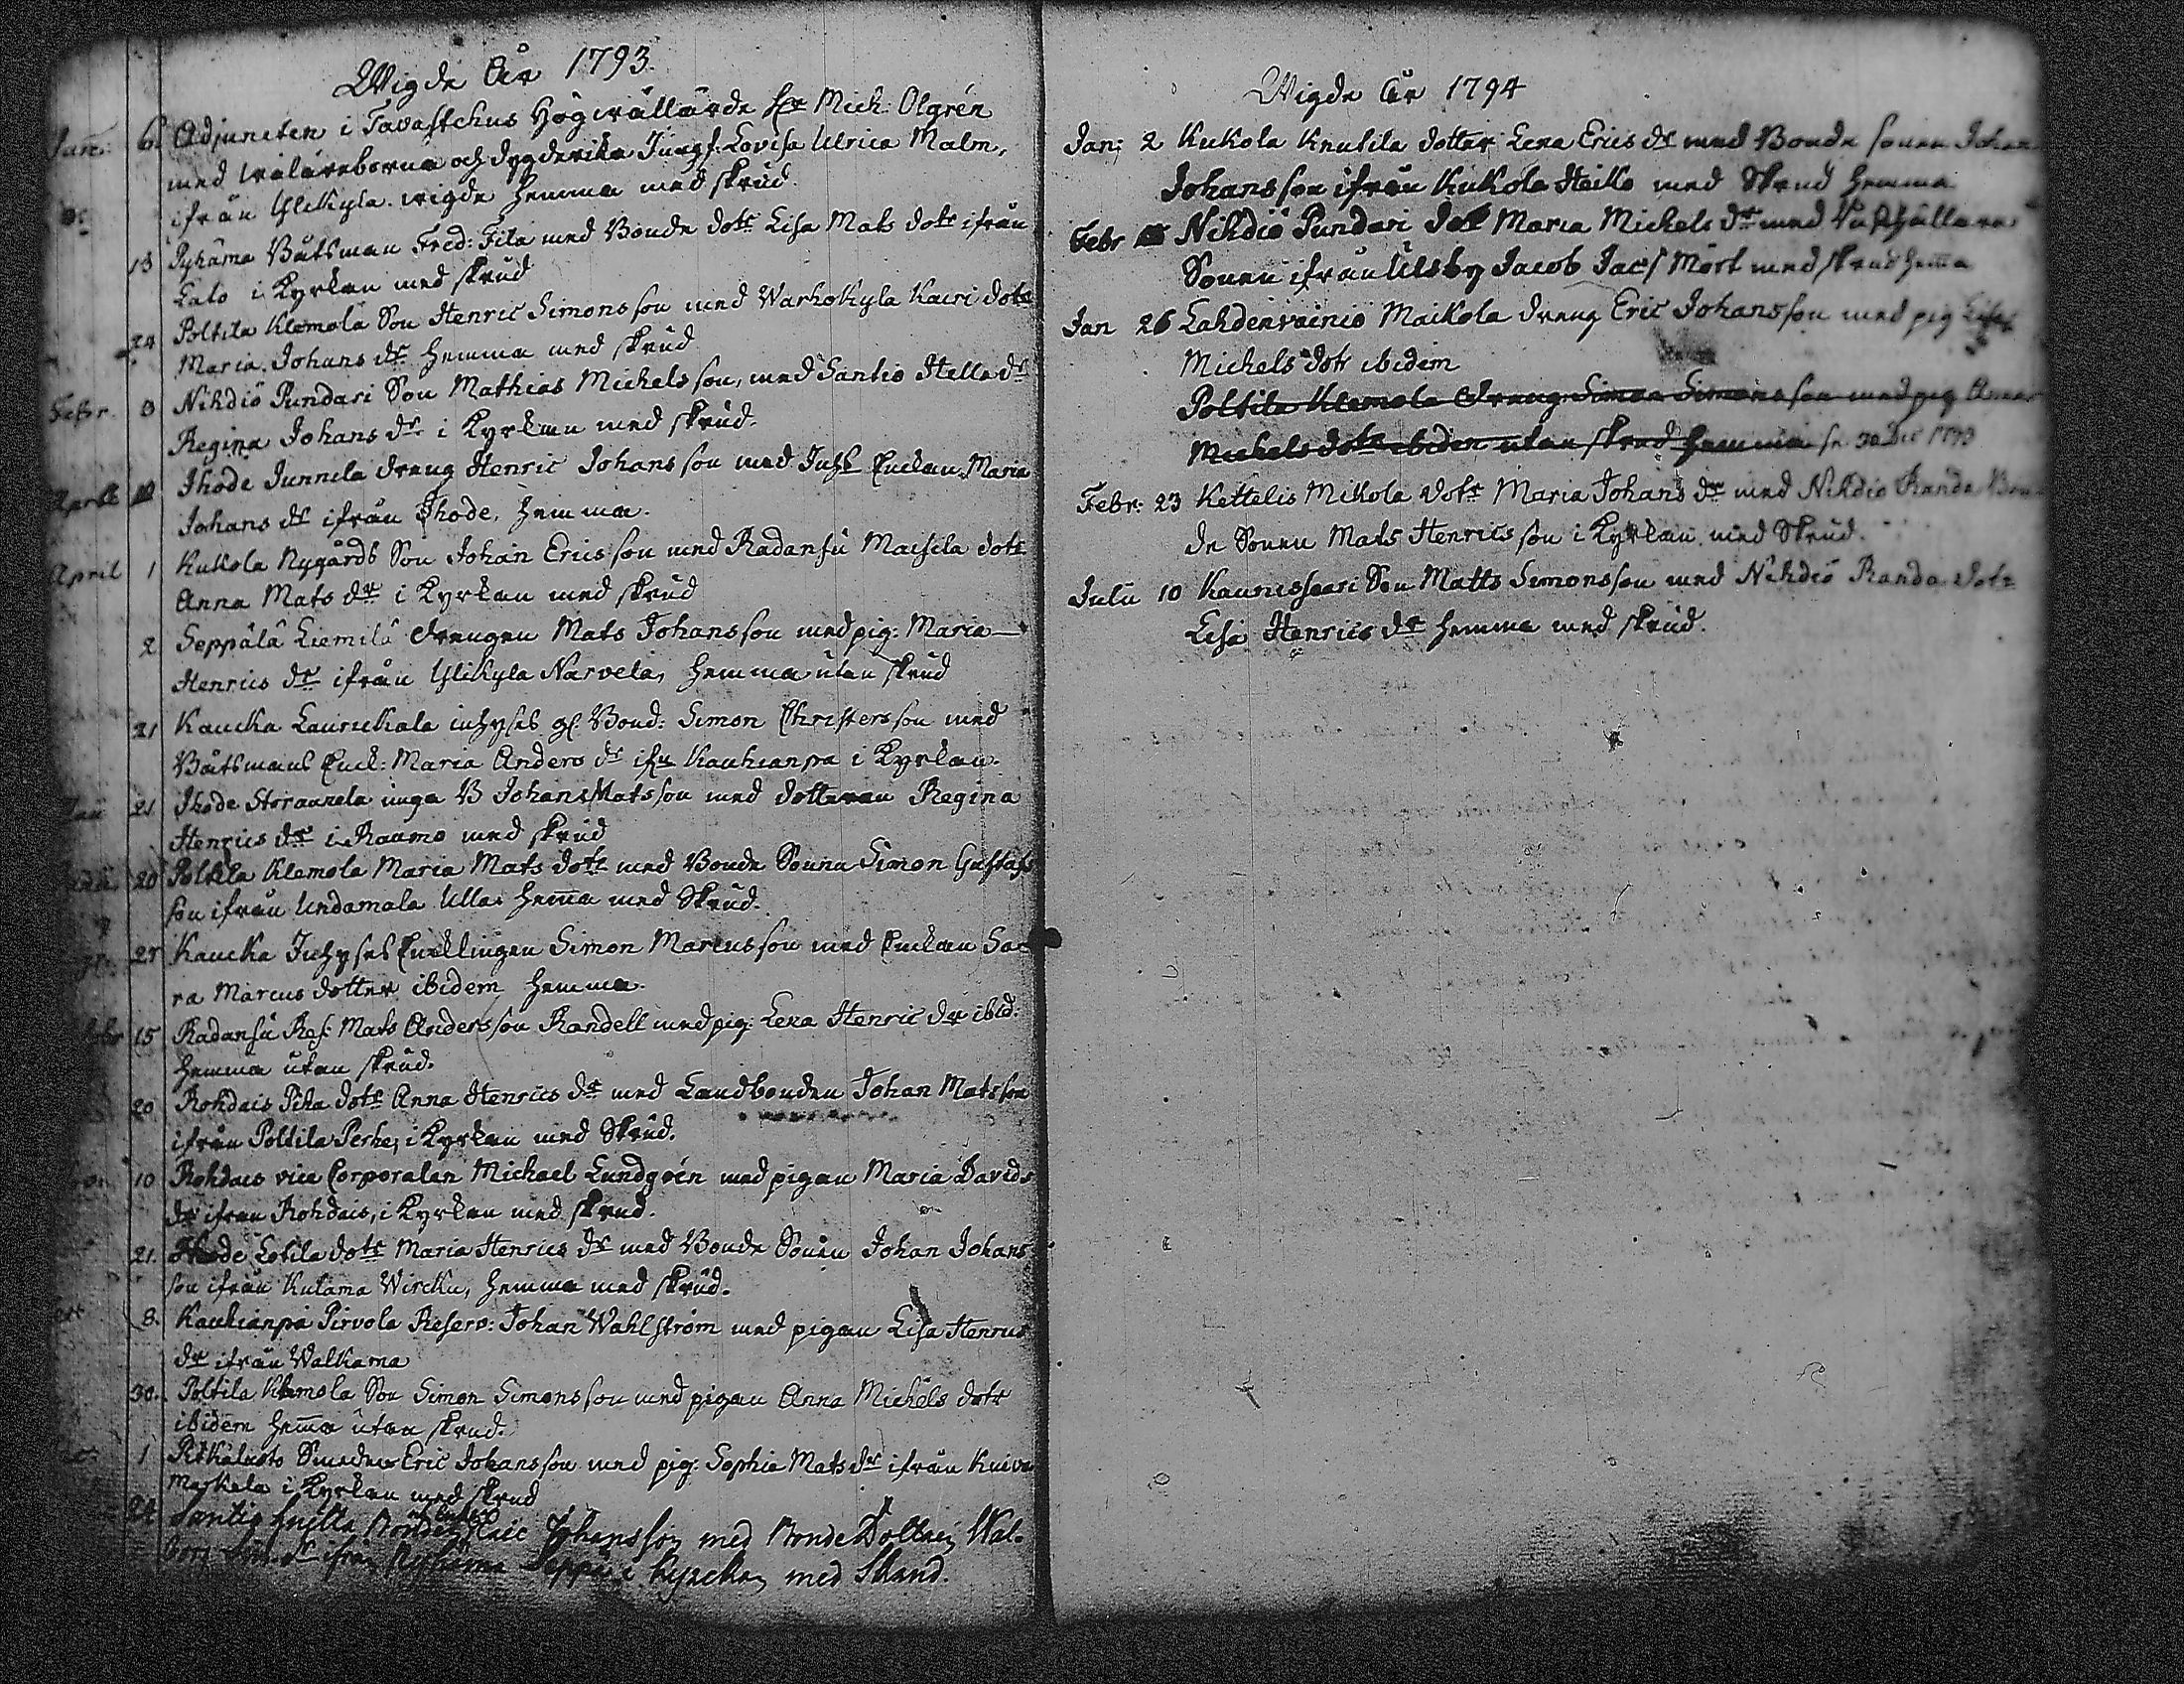 Wigde År 1793.
Jan: 6. Adjuncten i Tavastehus Högwällärde Hr Mich: Olgrén
med wäläreborna och dygderika Jungf: Lovisa Ulrica Malm,
ifrån Ylikyla. wigde hemma med skrud.
13 Pyhäma Båtsman Fred: Fila med Bonde dotr Lisa Mats dotr ifrån
Lato i Kyrkan med skrud
24 Poltila Klemola Son Henric Simonsson med Warhokyla Kauri dotr
Maria Johans dr hemma med skrud
Febr. 3 Nihdiö Pundari Son Mathias Michelsson, med Santio Hella dr
Regina Johans dr i Kyrkan med skrud.
Ihode Junnila dreng Henric Johansson med Enckan Maria
Johans dr ifrån Ihode, hemma.
April 1 Kukola Nygårds Son Johan Ericsson med Radansu Maisila dotr
Anna Mats dr i Kyrkan med skrud
2 Seppälä Liemilä drengen Mats Johansson med pig: Maria
Henrics dr ifrån Ylikyla Narvela, hemma utan skrud
21 Kaucka Laurickala inhyses gl. Bond: Simon Christersson med
Båtsmans Enck: Maria Anders dr ifrn Kauhianpa i Kyrkan.
21 Ihode Storannela unga B Johan Matsson med dotteren Regina
Henrics dr i Raumo med skrud
20 Poltila Klemola Maria Mats dotr med Bonde Sonen Simon Gustafs
son ifrån Undamala Ulla: hemma med Skrud.
27 Kaucka Inhyses Encklingen Simon Marcusson med Enckan Sa
ra Marcus dotter ibidem hemma.
15 Radansu Res: Mats Andersson Randell med pig: Lena Henric dr ibid:
hemma utan skrud.
20 Rohdais Piha dotr Anna Henrics dr med Landbonden Johan Matsson
ifrån Poltila Perhe, i Kyrkan med Skrud.
10 Rohdais vice Corporalen Michael Lundgrén med pigan Maria Davids
dr ifran Rohdais, i Kyrkan med skrud.
21. Ihode Lotila dotr Maria Henrics dr med Bonde Sonen Johan Johans
son ifrån Kulama Wircku, hemma med skrud.
8. Kauhianpä Pirvola Reserv: Johan Wahlström med pigan Lisa Henrics
dr ifrån Walkama
30. Poltila Klemola Son Simon Simonsson med pigan Anna Michels dotr
ibidem hemma utan skrud.
1 Pitkäluoto Smeden Eric Johansson med pig: Sophia Mats dr ifrån
Markela i Kyrkan med skrud
24 Santio Johansson med Bonde Dottren Wal-
borg dr ifrån Pyhäma Seppä i Kyrckan med Skrud.
Wigde År 1794
Jan: 2 Kukola Knutila dotter Lena Erics dr med Bonde sonen Johan
Johansson ifrån Kukola Heiko med Skrud hemma.
Febr Nihdiö Pundari dotr Maria Michels dr med
Sonen ifrån Ulsby Jacob Jacs Mört med skrud hemma
Jan 26 Lahdenvainio Maikola dreng Eric Johansson med pig Lisa
Michels dotr ibidem
Poltila Klemola dreng Simon Simonsson med pig Anna
Michels dotr ibidem utan skrud hemma se 30 Dec 1793
Febr: 23 Kettelis Mikola dotr Maria Johans dr med Nihdiö Randa Bon
de Sonen Mats Henricsson i Kyrkan med Skrud.
Julii 10 Kaurissaari Son Matts Simonsson med Nihdiö Randa dotr
Lisa Henrics dr hemma med skrud.